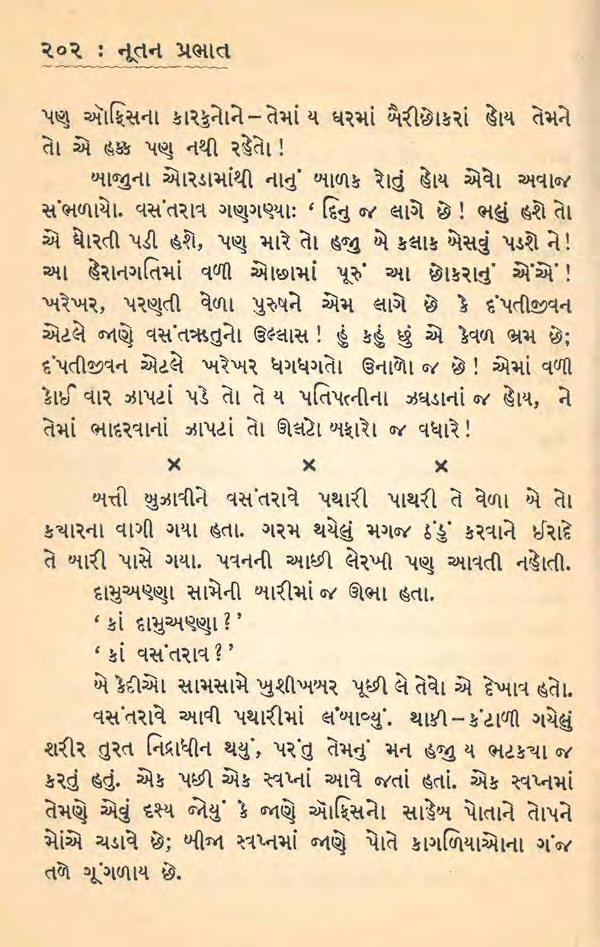 ૨૦૨ : નૂતન પ્રભાત
પણ ઑફિસના કારકુનોને – તેમાં ય ઘરમાં બૈરીછોકરાં હોય તેમને
તો એ હક્ક પણ નથી રહેતો !
બાજુના ઓરડામાંથી નાનું બાળક રોતું હોય એવો અવાજ
સંભળાયો. વસંતરાવ ગણગણ્યાઃ ‘ દિનુ જ લાગે છે ! ભલું હશે તો
એ ઘોરતી પડી હશે, પણ મારે તો હજી બે કલાક બેસવું પડશે ને !
આ હેરાનગતિમાં વળી ઓછામાં પૂરું આ છોકરાનું એંએં !
ખરેખર, પરણતી વેળા પુરુષને એમ લાગે છે કે દંપતીજીવન
એટલે જાણે વસંતઋતુનો ઉલ્લાસ ! હું કહું છું એ કેવળ ભ્રમ છે;
દંપતીજીવન એટલે ખરેખર ધગધગતો ઉનાળો જ છે ! એમાં વળી
કોઈ વાર ઝાપટાં પડે તો તે ય પતિપત્નીના ઝઘડાનાં જ હોય, ને
તેમાં ભાદરવાનાં ઝાપટાં તો ઊલટો બફારો જ વધારે !
× × ×
બત્તી બુઝાવીને વસંતરાવે પથારી પાથરી તે વેળા બે તો
ક્યારના વાગી ગયા હતા. ગરમ થયેલું મગજ ઠંડું કરવાને ઈરાદે
તે બારી પાસે ગયા. પવનની આછી લેરખી પણ આવતી નહોતી.
દામુઅણ્ણા સામેની બારીમાં જ ઊભા હતા.
‘ કાં દામુઅણ્ણા ? ’
‘ કાં વસંતરાવ ? ’
બે કેદીઓ સામસામે ખુશીખબર પૂછી લે તેવો એ દેખાવ હતો.
વસંતરાવે આવી પથારીમાં લંબાવ્યું. થાકી – કંટાળી ગયેલું
શરીર તુરત નિદ્રાધીન થયું, પરંતુ તેમનું મન હજુ ય ભટક્યા જ
કરતું હતું. એક પછી એક સ્વપ્નાં આવે જતાં હતાં. એક સ્વપ્નમાં
તેમણે એવું દૃશ્ય જોયું કે જાણે ઑફિસનો સાહેબ પોતાને તોપને
મોંએ ચડાવે છે; બીજા સ્વપ્નમાં જાણે પોતે કાગળિયાઓના ગંજ
તળે ગૂંગળાય છે.